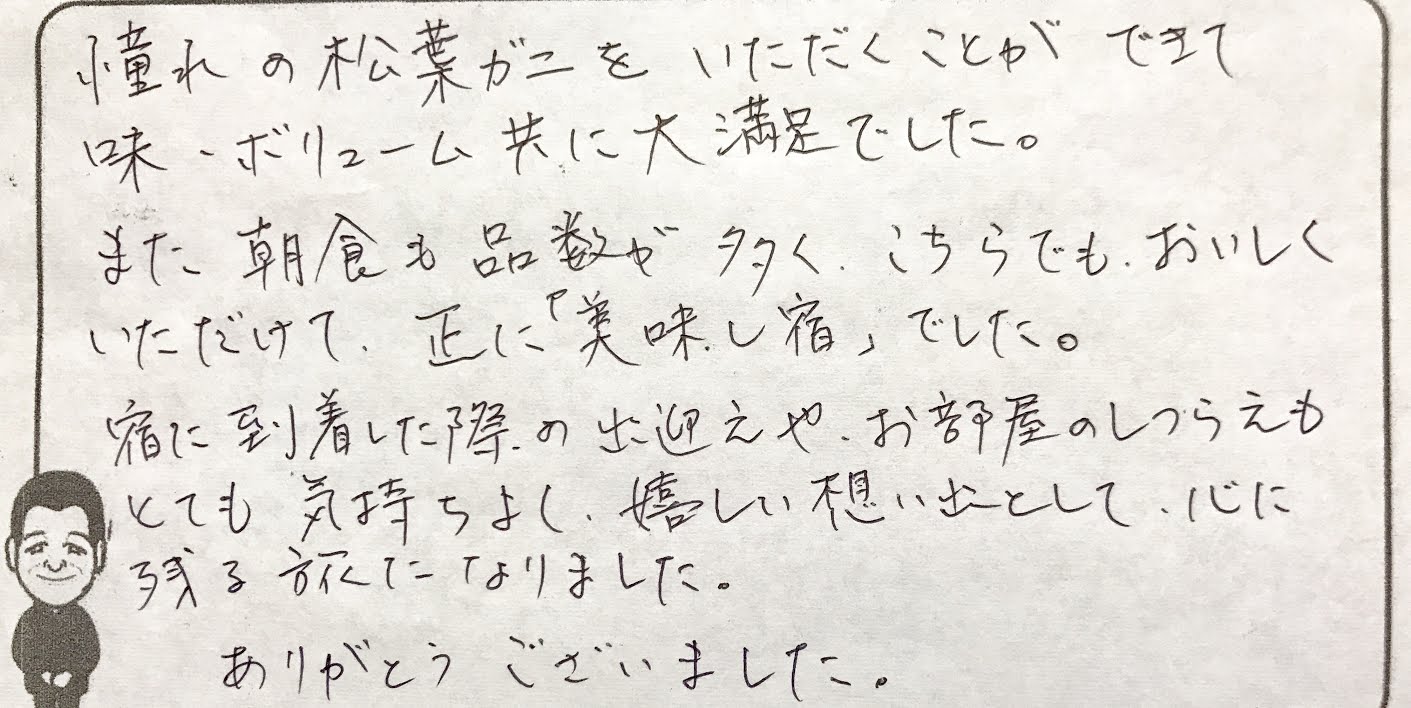 憧れの松葉ガニを いただくことが できて
味・ボリューム 共に 大満足でした。
また 朝食も 品数が 多く、こちらでも、おいしく
いただけて、正に「美味し宿」でした。
宿に到着した際の出迎えや、お部屋のしつらえも
とても 気持ちよく、嬉しい想い出として、心に
残る 旅に なりました。
ありがとう ございました。